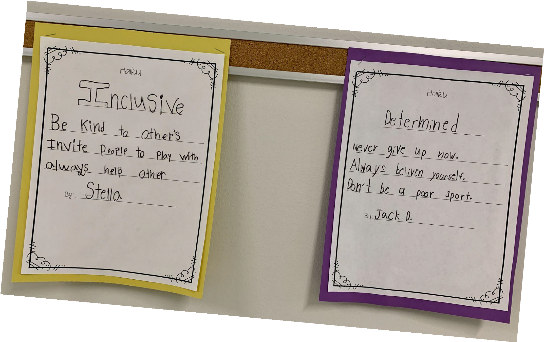 Haiku
Inclusive
Be Kind to other's
Invite People to Play with
always help other
By: Stella
Haiku
Determined
never give up now.
Always belive yourself.
Don't be a poor sport.
By: Jack D.